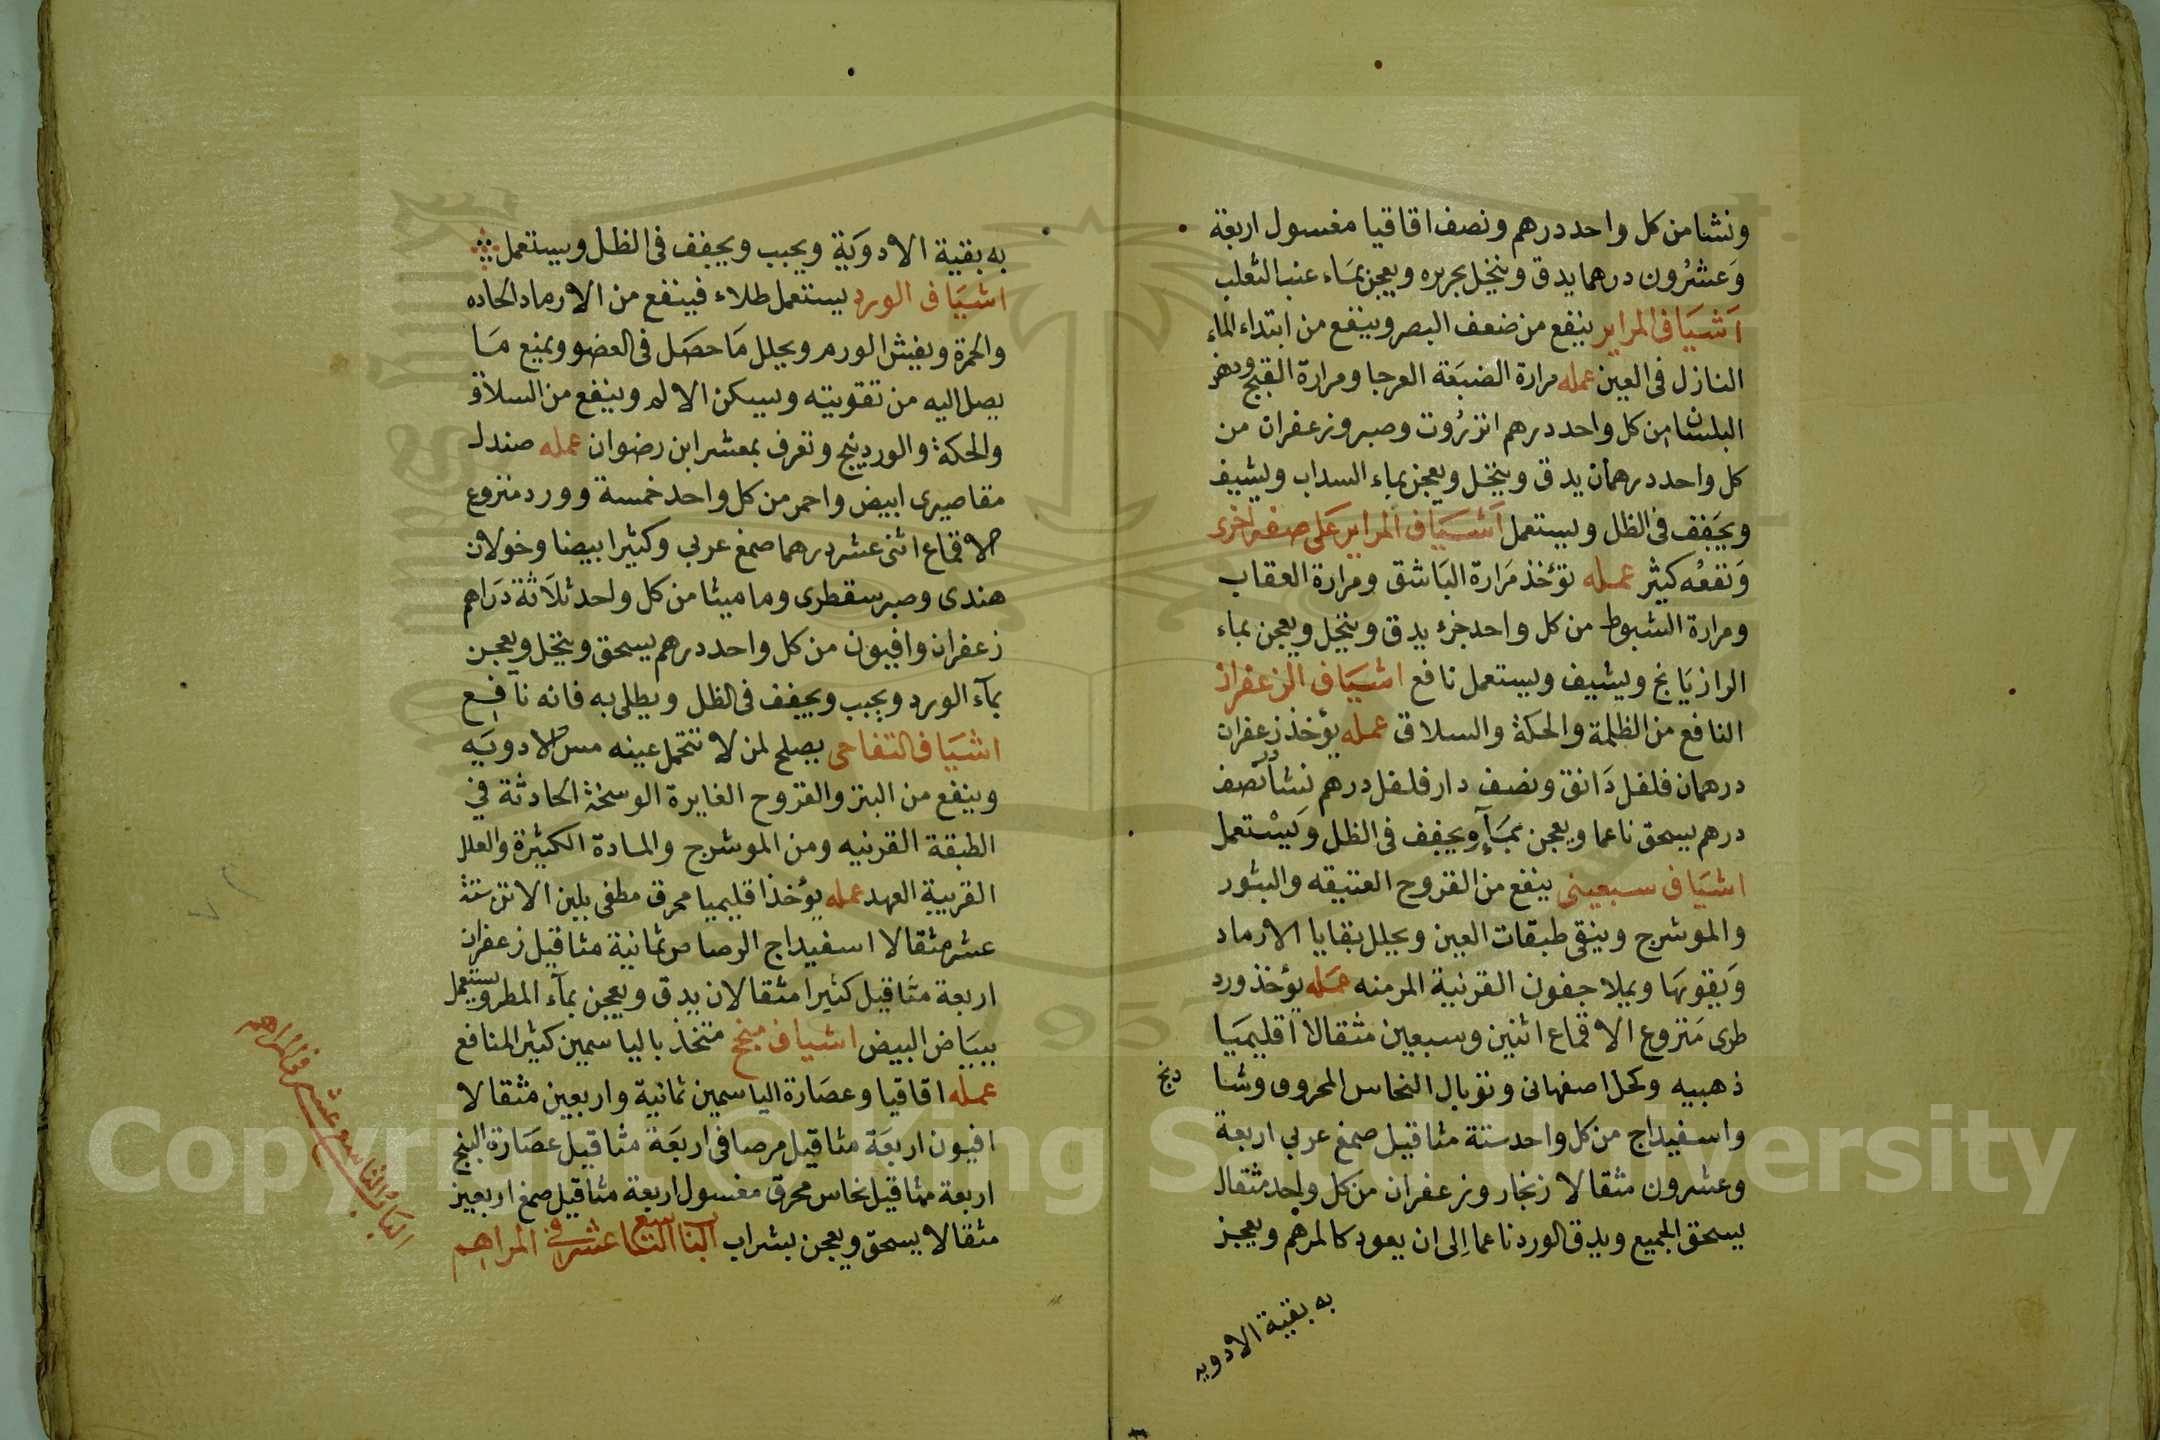 ونشا من كل واحد درهم ونصف اقاقيا مغسول اربعة
وَعشرُون درهما يدق وينخل بحريره ويعجن بمَاء عنب الثعلب
اَشيَاف المراير ينفع من ضعف البصر وينفع من ابتداء الماء
النازل فى العين عمله مرارة الضبَعة العرجا ومرارة القبج ودهن
البلسان من كل واحد درهم انزرُوت وصبر وزعفران من
كل واحد درهمان يدق وينخل ويعجن بماء السداب ويشيف
ويجَفف فى الظل ويستعمل اَشيَاف المراير عَلى صفة اخرى
وَنفعُه كثير عمله تؤخذ مَرارة البَاشق ومرارة العقاب
ومرارة الشبوط من كل واحد جزء يدق وينخل ويعجن بماء
الرازيَانج ويشيف ويستعمل نافع اشيَاف الزعفران
النافع من الظلمة والحكة والسلاق عمله يؤخذ زعفران
درهمان فلفل دَانق ونصف دار فلفل درهم نشادر نصف
درهم يسحق ناعما ويعجن بمَآءٍ ويجفف فى الظل وَيسْتعمل
اشيَاف سبعينى ينفع من القروح العتيقه والبثور
والموشرج وينقى طبقات العين ويحلل بقايا الارماد
وَيقويهَا ويملا جفون القرنية المزمنه عمَله يؤخذ ورد
طرى مَنزوع الاقماع اثنين وسبعين مثقالا اقليميَا
ذهبيه وكحل اصفهانى وتوبال النحاس المحروق وشا
دنج
واسفيداج من كل واحد ستة مثاقيل صمغ عربي اربعة
وعشرون مثقالا زنجار وزعفران من كل واحد مثقال
يسحق الجميع ويدق الورد ناعما اِلى ان يعود كالمرهم ويعجن
به بقية الادويه
به بقية الادوَية ويحبب ويجفف فى الظل ويستعمل
اشيَاف الورد يستعمل طلاء فينفع من الارماد الحاده
والحمرة ويفش الورم ويحلل مَا حصَل فى العضو ويمنع مَا
يصل اليه من تقويته ويسكن الالم وينفع من السلاق
والحكة والوردينج وتعرف بمعشر ابن رضوان عمله صندل
مقاصيرى ابيض واحمر من كل واحد خمسة وورد منزوع
الاقماع اثنى عشر درهما صمغ عربي وكثيرا بيضا وخولان
هندى وصبر سقطرى وماميثا من كل واحد ثلَاثة دَراهم
زعفران وافيون من كل واحد درهم يسحق وينخل ويعجن
بمآء الورد ويحبب ويجفف فى الظل ويطلى به فانه نافع
اشيَاف التفاحى يصلح لمن لا تتحمل عينه مس الادويَه
وينفع من البثر والقروح الغايرة الوسخة الحادثة في
الطبقة القرنيه ومن الموشرج والمادة الكثيرة والعلل
القريبة العهد عمله يؤخذ اقليميا محرق مطفى بلبن الاتن ستة
عشر مثقالا اسفيداج الرصاص ثمانية مثاقيل زعفران
اربعة مثاقيل كثيرا مثقالان يدق ويعجن بمآء المطر ويستعمل
ببيَاض البيض اشياف منجح متخذ بالياسمين كثير المنافع
عمله اقاقيا وعصَارة الياسمين ثمانية واربعين مثقالا
افيون اربعَة مثاقيل مرصافى اربَعَة مثاقيل عصَارة البنج
اربعة مثاقيل نحاس محرق مغسول اربعة مثاقيل صمغ اربعين
مثقالا يسحق ويعجن بشراب الباب التاسع عشر في المراهم
البَابُ التاسع عشر فى المراهم